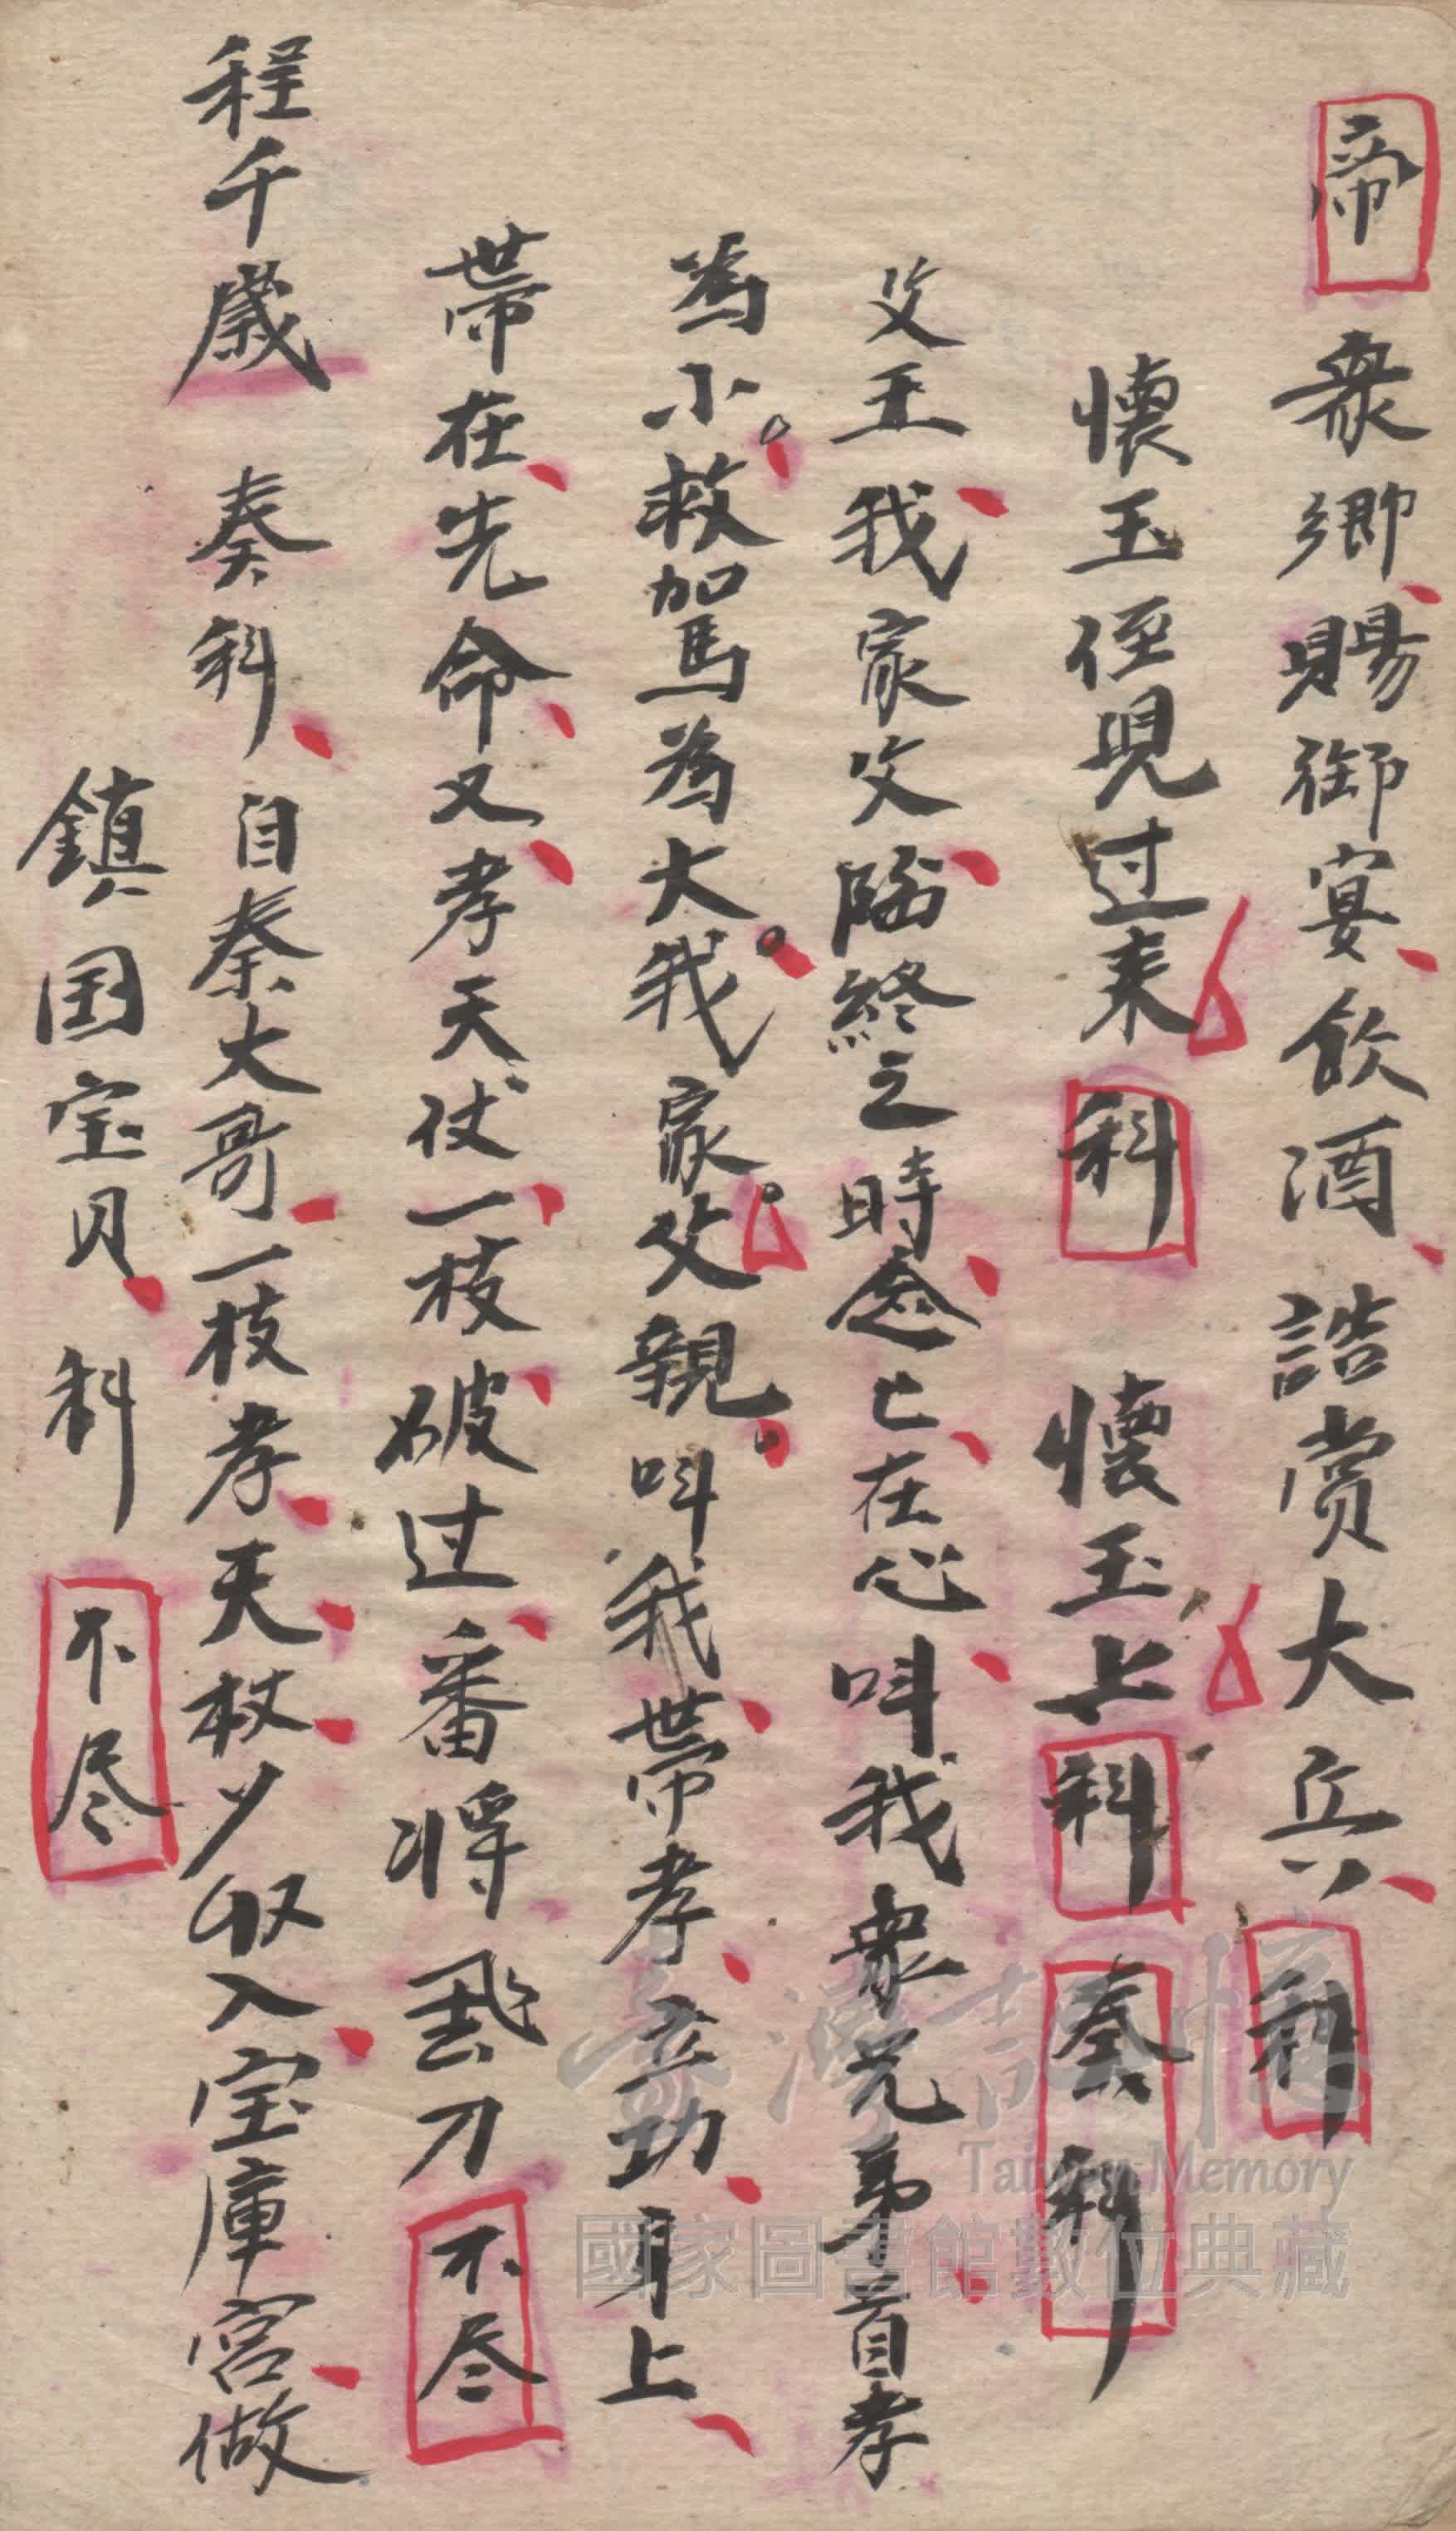 帝 衆卿賜御宴飲酒誥賞大兵科
懷玉侄現过来科 懷玉上科奏科
父王我家父臨終之時念亡在心叫我衆兄弟首孝
為小救駕為大我家父親叫我带孝立功身上
带在先命又孝天仗一枝破过番将飛刀不尽
程千歲 奏科自秦大哥一枝孝天杖收入宝庫宮做
鎮国宝贝科不尽
臺灣記憶
Taiwan Memory
國家圖書館數位典藏